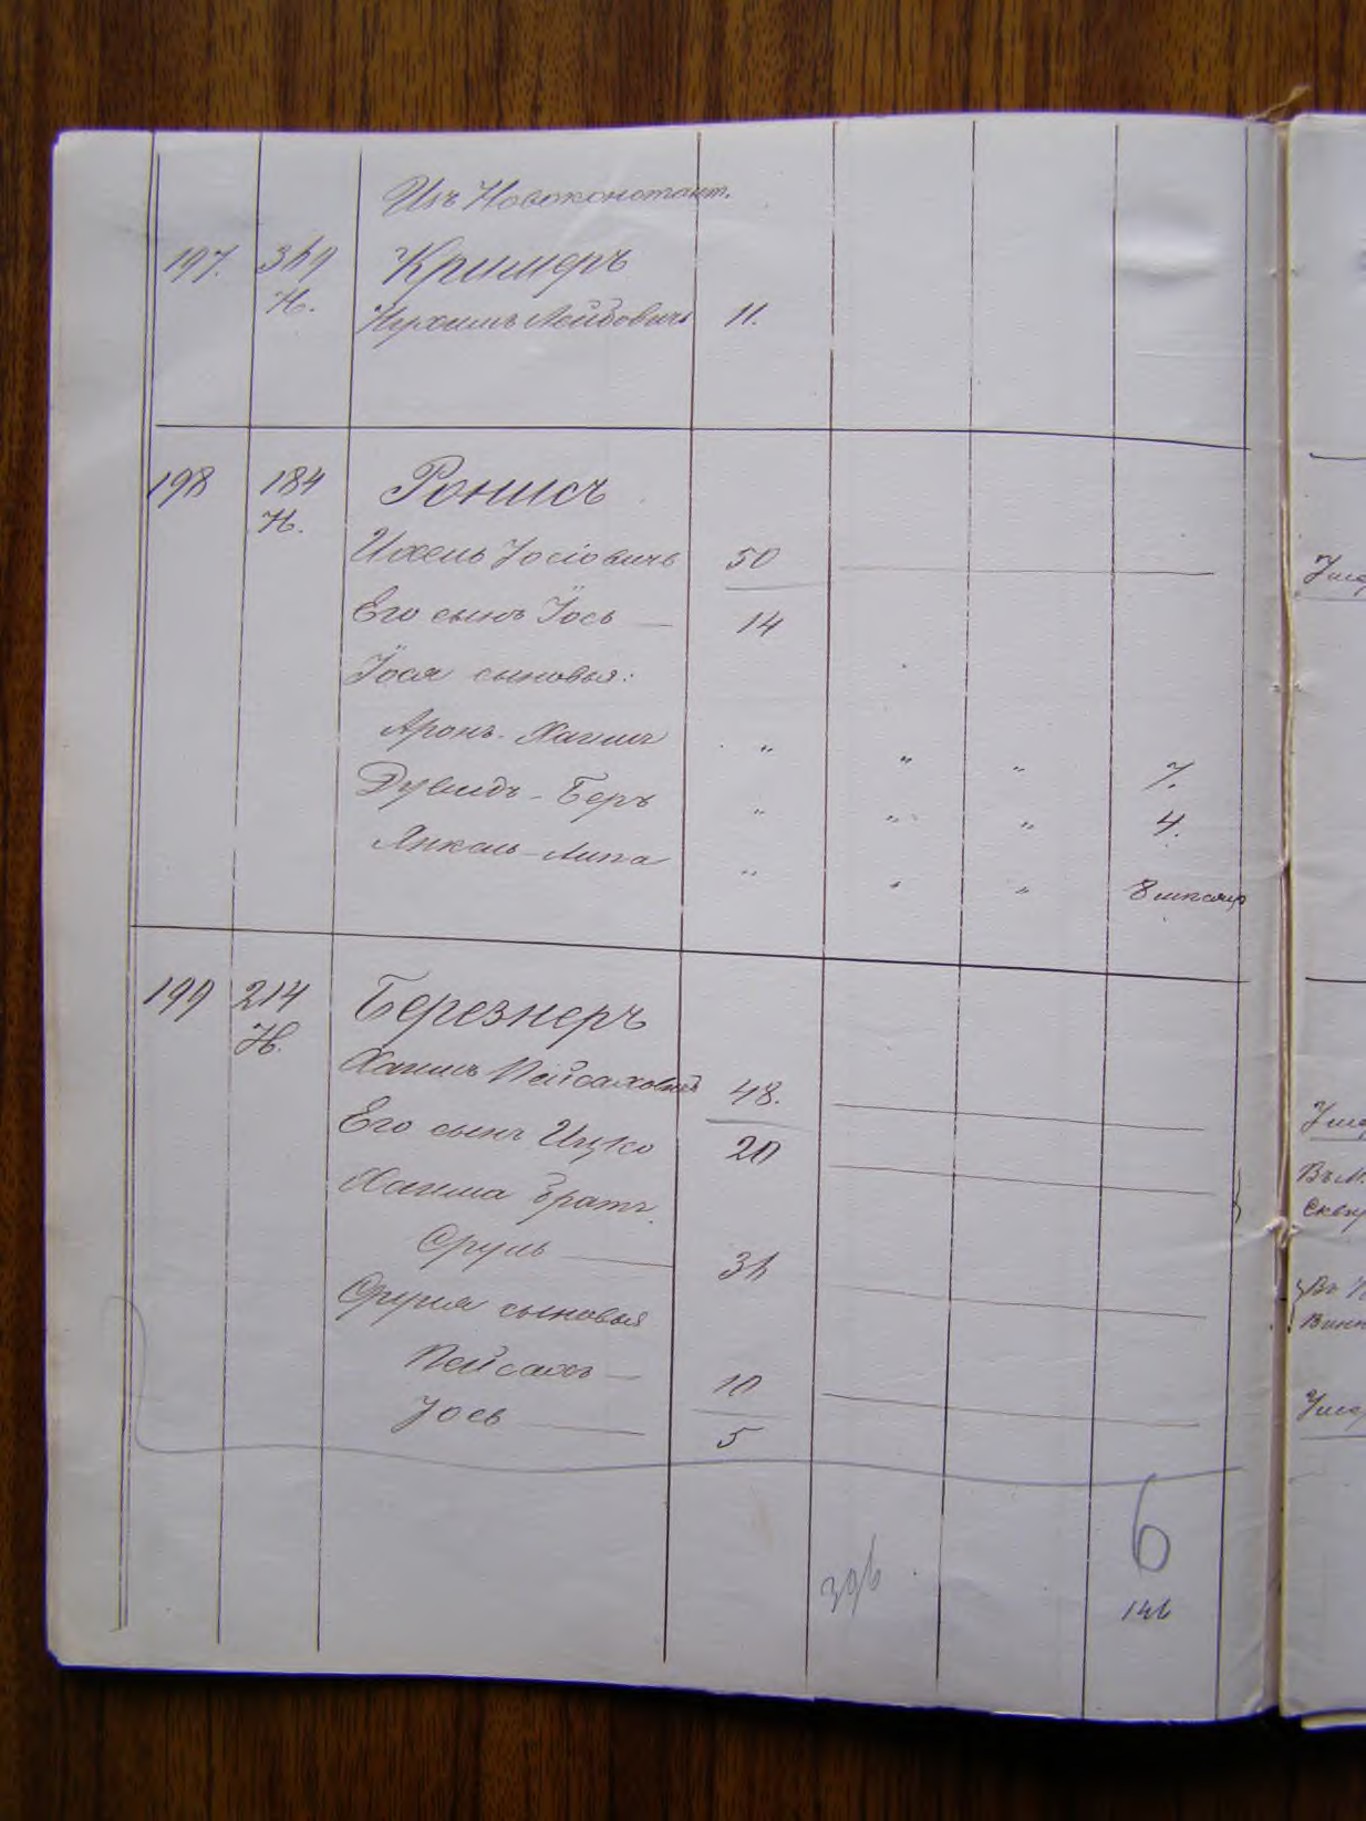 Изъ Новоконстант.
197. 369 Кримеръ
Н. Нухимъ Лейбовичъ 11.
198 184 Ронисъ
Н.
Иосель Іосіовичъ 50
Его сынъ Іось — 14
Іося сыновья:
Аронъ-Хаимъ " " " 7.
Дувидъ-Беръ " " " 4.
Янкель-Липа " " " 8 месяц
199 214 Березнеръ
Н.
Хаимъ Пейсаховичъ 48.
Его сынъ Ицко 20
Хаима братъ
Сруль — 36
Сруля сыновья
Пейсахъ — 10
Іось — 5
6
396
146
Умер
Умер
Въ м.
Сквир
Въ
Винн
Умер